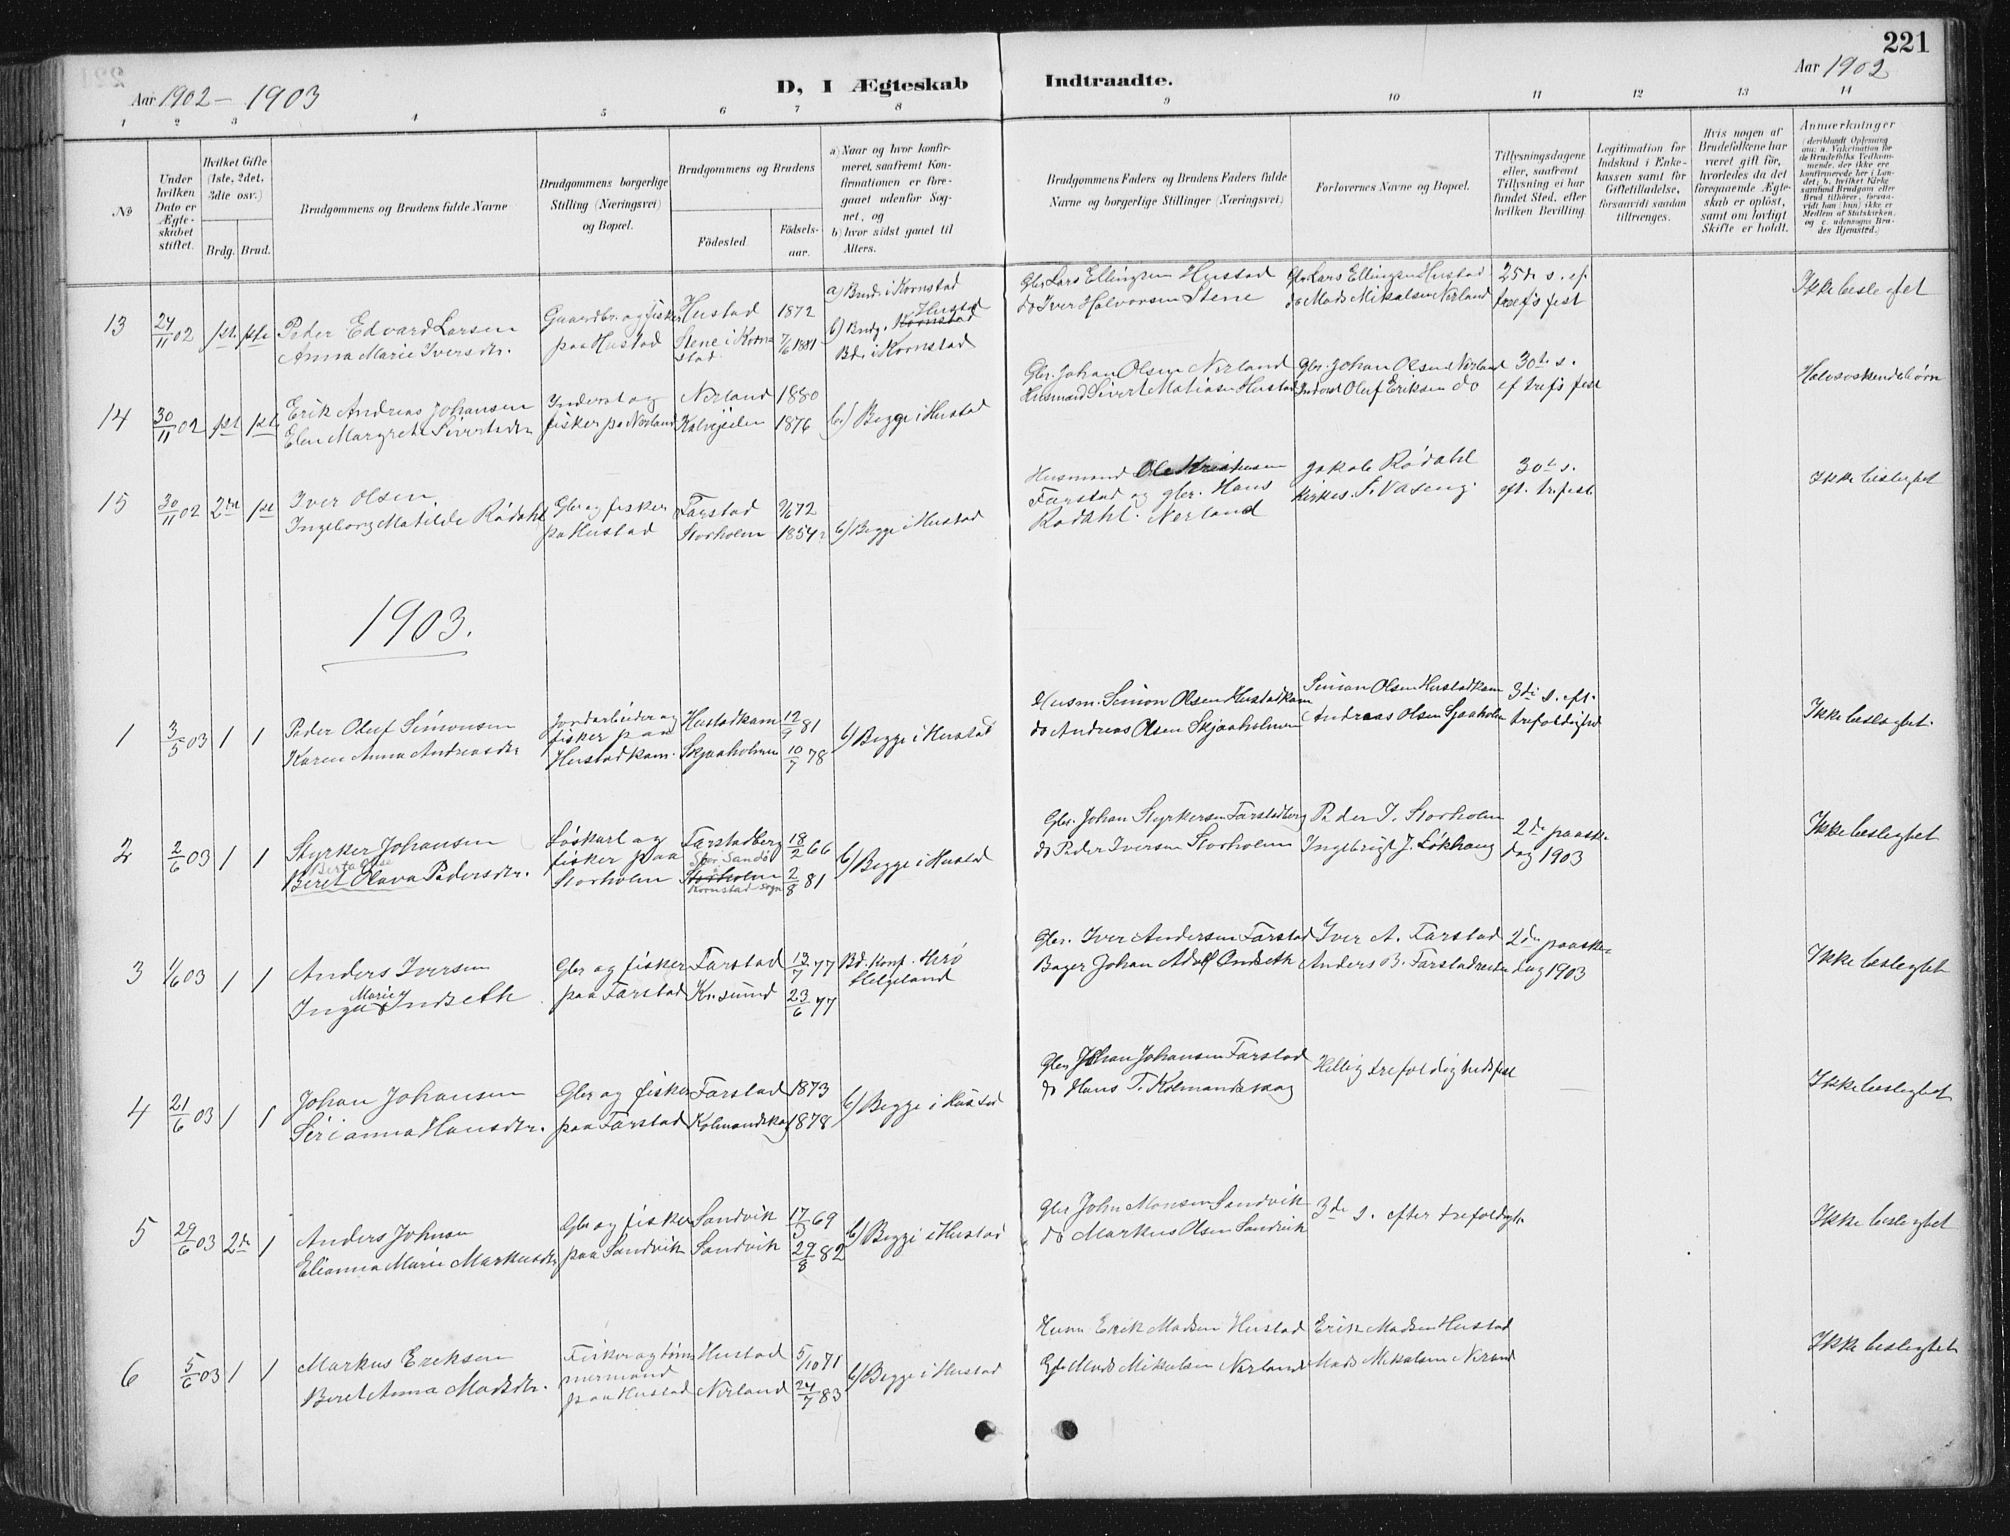 221
Aar 1902 - 1903
D, I Ægteskab
Indtraadte.
Aar 1902
1 2 3 4 5 6 7 8 9 10 11 12 13 14
No
Under hvilken Dato er Ægteskabet stiftet.
Hvilket Gifte (1ste, 2det, 3die osv.)
Brdg. Brud.
Brudgommens og Brudens fulde Navne
Brudgommens borgerlige Stilling (Næringsvei) og Bopæl.
Brudgommens og Brudens
Födested.
Födselsaar.
a) Naar og hvor konfirmeret, saafremt Konfirmationen er foregaaet udenfor Sognet, og
b) hvor sidst gaaet til Alters.
Brudgommens Faders og Brudens Faders fulde Navne og borgerlige Stillinger (Næringsvei)
Forlovernes Navne og Bopæl.
Tillysningsdagene eller, saafremt Tillysning ei har fundet Sted, efter hvilken Bevilling.
Legitimation for Indskud i Enkekassen samt for Giftetilladelse, forsaavidt saadan tiltrænges.
Hvis nogen af Brudefolkene har været gift för, hvorledes da det foregaaende Ægteskab er oplöst, samt om lovligt Skifte er holdt.
Anmærkninger
(deriblandt Oplysning om: a. Vakcination for de Brudefolks Vedkommende, der ikke ere konfirmerede her i Landet; b. hvilket Kirkesamfund Brudgom eller Brud tilhörer, forsaavidt han (hun) ikke er Medlem af Statskirken, og c. udensogns Brudes Hjemsted.)
13 24/11 02 1st. 1ste Peder Edvard Larsen
Anna Marie Iversdtr.
Gaardbr. og fisker
paa Hustad
Hustad 1872
Stene i Kornstad 7/6 1881
a) Brud. i Kornstad
b) Brdg. Kornstad Hustad
Bd. i Kornstad
Gbr. Lars Ellingsen Hustad
do Iver Halvorsen Stene
Gbr Lars Ellingsen Hustad
do Mads Mikalsen Nerland
25de s. ef.
trefs fest
Ikke beslegtet
14 30/11 02 1st 1st Erik Andreas Johansen
Elen Margrete Sivertsdtr
Inderst og
fisker på Nerland
Nerland 1880
Kalvejeilen 1876
b) Begge i Hustad
Gbr. Johan Olsen Nerland
Husmand Sivert Matiasen Hustad
Gbr. Johan Olsen Nerland
Inderst Oluf Eriksen do
30te s.
ef trefs fest
Halvsøskendebørn
15 30/11 02 2den 1st Iver Olsen
Ingeborg Matilde Rødahl
Gbr og fisker
pa Hustad
Farstad 7/6 72
Storholm 1854
b) Begge i Hustad
Husmand Ole Kristiansen
Farstad og gbr. Hans
Rødahl. Nerland
Jakob Rødahl
Kirkes. S. Vaseng.
30te s.
eft. trefest
Ikke beslegtet
1903.
1 3/5 03 1 1 Peder Oluf Simonsen
Karen Anna Andreasdtr
Jordarbeider og
fisker paa
Hustadkam.
Hustadkam 12/9 81
Skjaaholmen 10/7 78
b) Begge i Hustad
Husm. Simon Olsen Hustadkam
do Andreas Olsen Skjaaholmen
Simon Olsen Hustadkam
Andreas Olsen Sjaaholm
3di s. eft.
trefoldighed
Ikke beslegtet.
2 2/6 03 1 1 Styrker Johansen
Berta Olse
Beret Olava Pedersdtr.
Løskarl og
fisker paa
Storholm
Farstadberg 18/2 66
Stor Sandø
Storholm 2/8 81
Kornstad sogn
b) Begge i Hustad
Gbr. Johan Styrkersen Farstadberg
do Peder Iversen Storholm
Peder I. Storholm
Ingebrigt J. Løkhaug
2de paaske
dag 1903
Ikke beslegtet
3 1/6 03 1 1 Anders Iversen
Marie
Inga Indseth
Gbr og fisker
paa Farstad
Farstad 13/7 77
Kr.sund 23/6 77
Bd. Konf. Herø
Helgeland
Gbr. Iver Andersen Farstad
Bager Johan Adolf Indseth
Iver A. Farstad
Anders B. Farstad
2de paaske
dag 1903
Ikke beslegtet
4 21/6 03 1 1 Johan Johansen
Serianna Hansdtr.
Gbr og fisker
paa Farstad
Farstad 1873
Kolmandskog 1878
b) Begge i Hustad
Gbr Johan Johansen Farstad
do Hans T. Kolmandskog
Hellig trefoldighedsfest
Ikke beslegtet
5 29/6 03 2de 1 Anders Johnsen
Elianna Marie Markusdtr
Gbr og fisker
paa Sandvik
Sandvik 17/5 69
Sandvik 29/8 82
b) Begge i Hustad
Gbr John Monsen Sandvik
do Markus Olsen Sandvik
3de s. efter trefoldigh.
Ikke beslegtet
6 5/6 03 1 1 Markus Eriksen
Beret Anna Madsdtr.
Fisker og tøm
mermand
paa Hustad
Hustad 5/10 71
Nerland 24/7 83
b) Begge i Hustad
Husm Erik Madsen Hustad
Gbr Mads Mikalsen Nerland
Erik Madsen Hustad
Mads Mikalsen Nerland
Ikke beslegtet